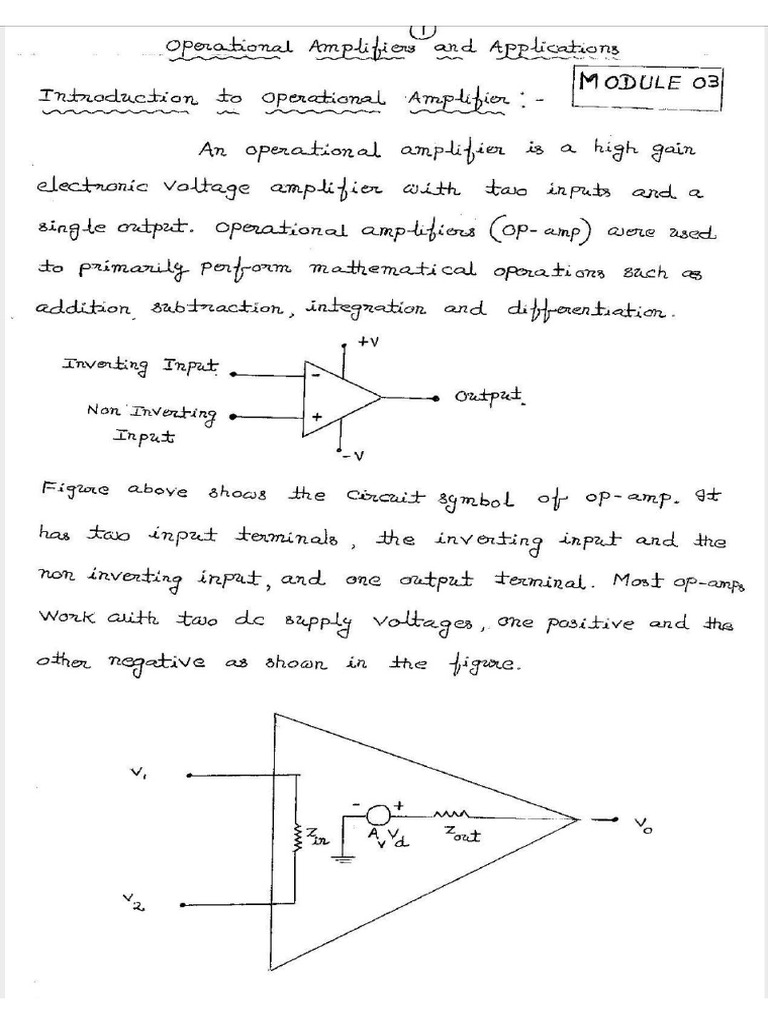 1
Operational Amplifiers and Applications
MODULE 03
Introduction to Operational Amplifier:-
An operational amplifier is a high gain
electronic voltage amplifier with two inputs and a
single output. Operational amplifiers (op-amp) were used
to primarily perform mathematical operations such as
addition, subtraction, integration and differentiation.
+V
Inverting Input
-
Output.
Non Inverting
+
Input
-V
Figure above shows the circuit symbol of op-amp. It
has two input terminals, the inverting input and the
non inverting input, and one output terminal. Most op-amps
work with two dc supply voltages, one positive and the
other negative as shown in the figure.
V1
- +
Zin
AvVd
Zout
Vo
V2